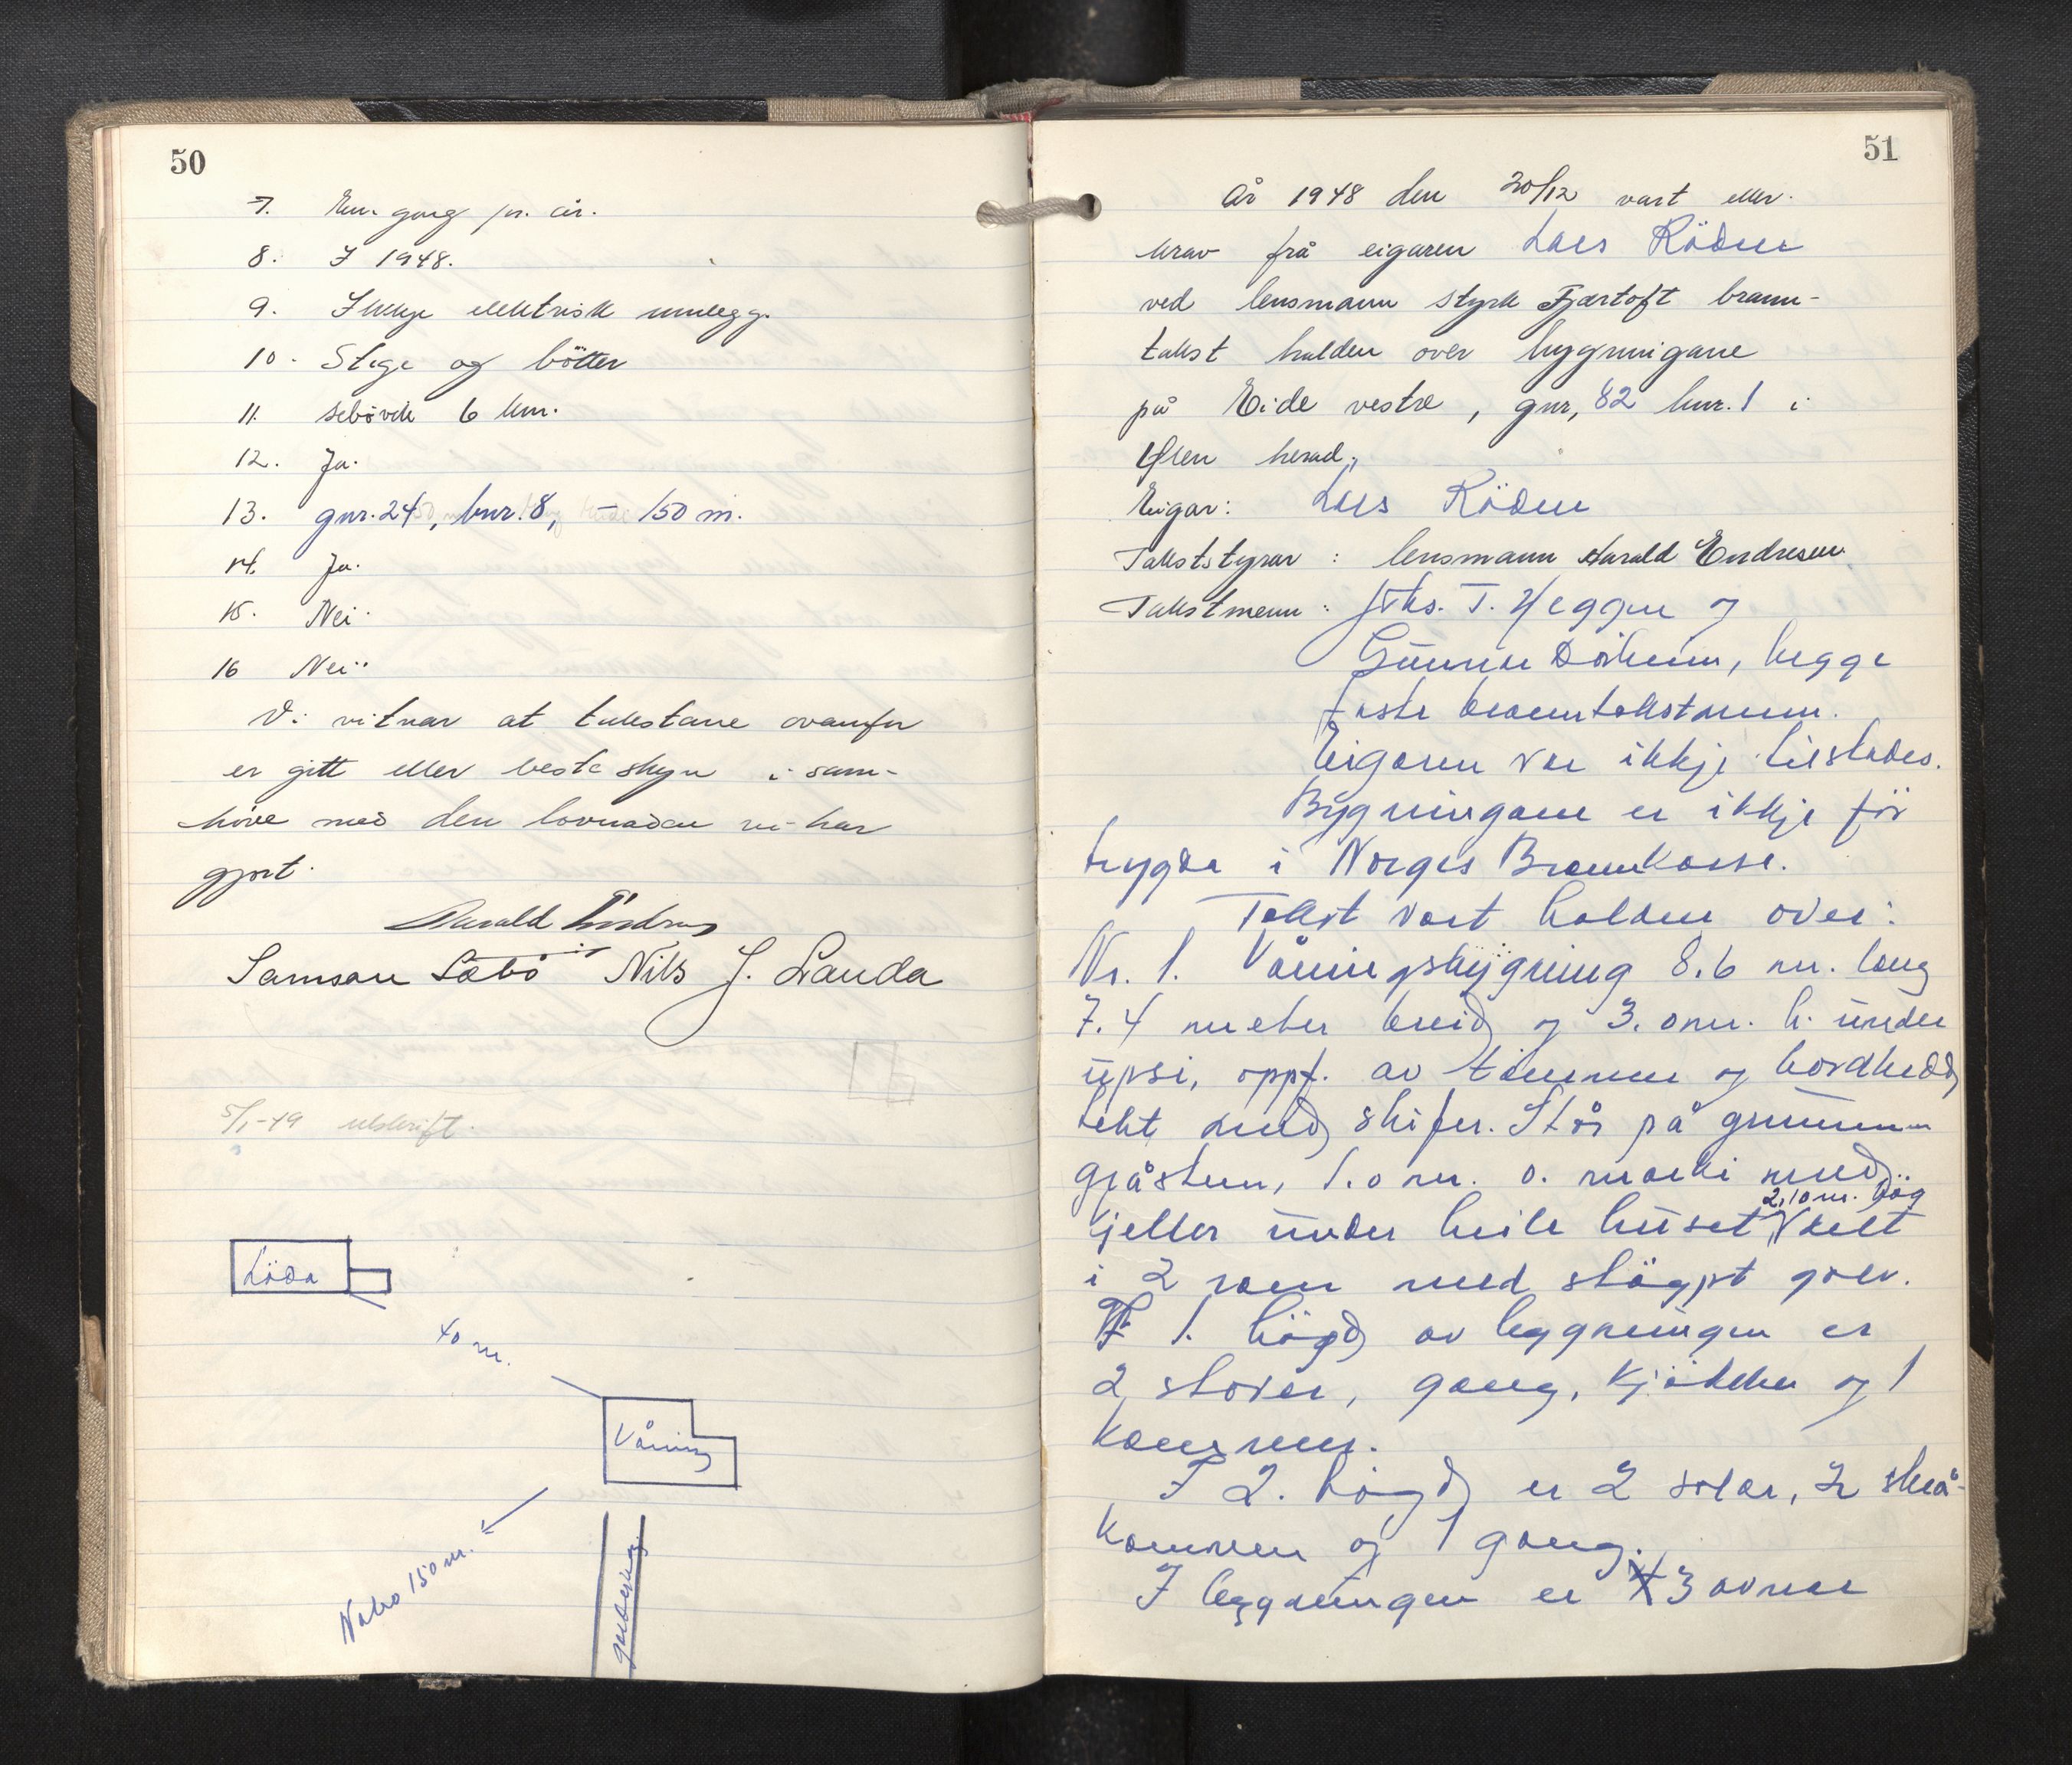 50
7. Ein gang pr. år.
8. I 1948.
9. Ikkje elektrisk innlegg.
10. Stige og bötter
11. Sebövik 6 km.
12. Ja.
13. gnr. 24, bnr. 8, – 150 m.
14. Ja.
15. Nei.
16 Nei.
Vi vitnar at takstane ovanfor
er gitt etter beste skyn i sam-
höve med den lovnaden vi har
gjort.
Harald Endresen
Samson Sæbö Nils J. Landa
5/1-49 utskrift.
Löda
40 m.
Våning
Nabo 150 m.
51
År 1948 den 20/12 vart etter
krav frå eigaren Lars Röden
ved lensmann Styrk Fjærtoft brann-
takst halden over bygningane
på Eide vestre, gnr. 82 bnr. 1 i
Ølen herad.
Eigar: Lars Röden
Takststyrar: lensmann Harald Endresen
Takstmenn: Johs. T. Heggen og
Gunnar, begge
faste branntakstmenn.
Eigaren var ikkje tilstades.
Bygningane er ikkje för
trygda i Norges Brannkasse.
Takst vart halden over:
Nr. 1. Våningsbygning 8.6 m. lang
7.4 meter breid og 3.0 m. h. under
upsi, oppf. av tömmer og bordkledd,
tekt med skifer. Står på grunnm.
gråstein, 1.0 m. o. marki med
kjellar under heile huset 2,10 m. høg delt
i 2 rom med stöypt golv.
I 1. högd av bygningen er
2 stover, gang, kjökken og 1
kammer.
I 2. högd er 2 solar, 2 skrå-
kammer og 1 gang.
I bygningen er 3 omnar